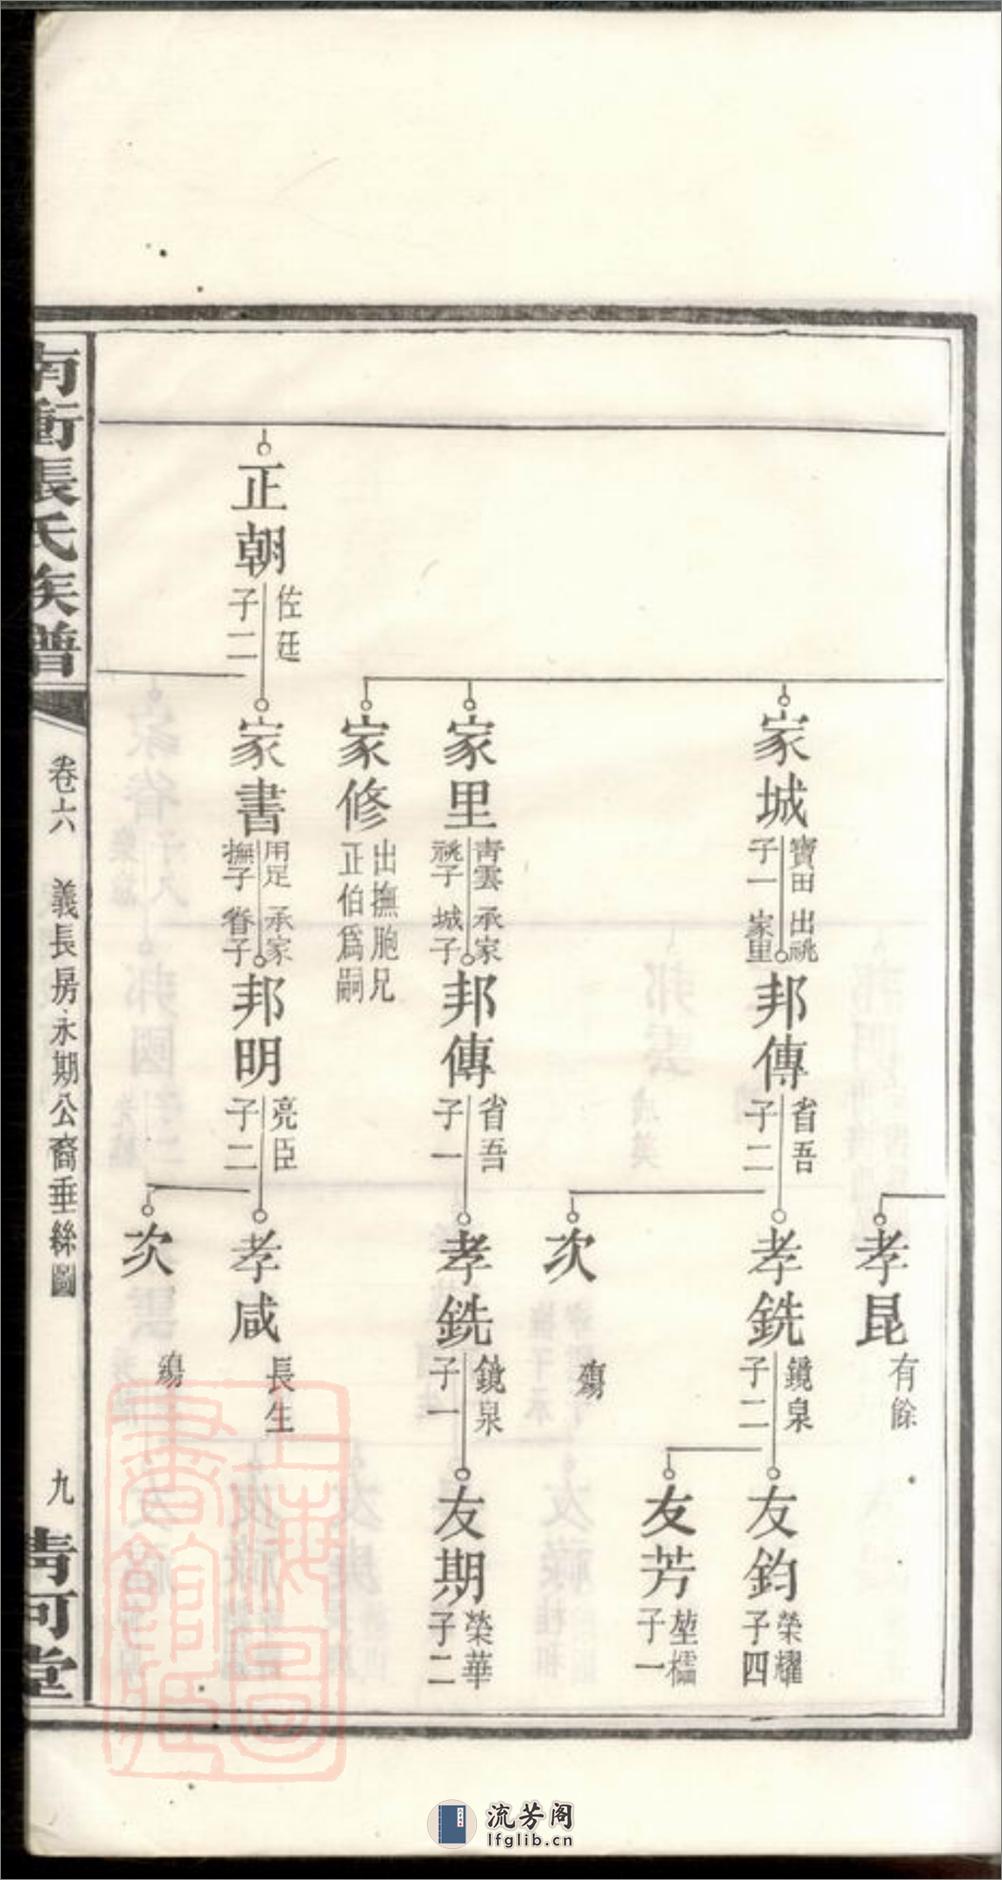 孝昆
有餘
家城
寶田 出祧
子一 家里
邦傳
省吾
子二
孝銑
鏡泉
子二
友鈞
榮耀
子四
友芳
堃檽
子一
次
殤
家里
青雲 承家
祧子 城子
邦傳
省吾
子一
孝銑
鏡泉
子一
友期
榮華
子二
家修
出撫胞兄
正伯爲嗣
正朝
佐廷
子二
家書
用足 承家
撫子 眷子
邦明
亮臣
子二
孝咸
長生
次
殤
南衝張氏族譜
卷六 義長房永期公裔垂絲圖
九
清河堂
上海圖書館藏
流芳阁
lfglib.cn